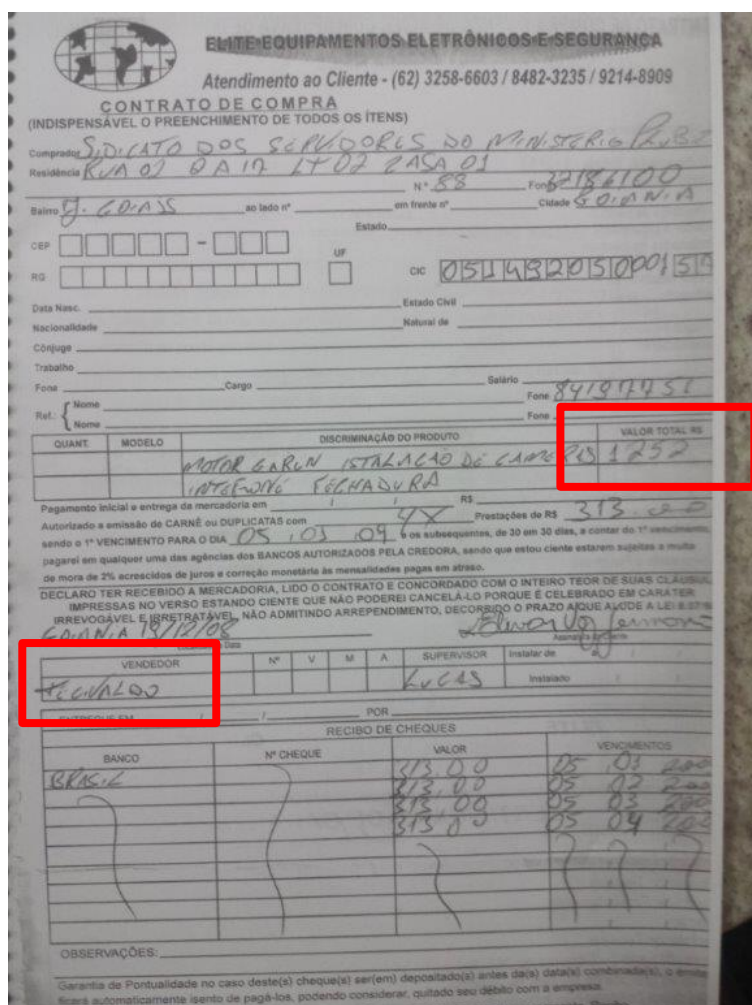 ELITE EQUIPAMENTOS ELETRÔNICOS E SEGURANÇA
Atendimento ao Cliente - (62) 3258-6603 / 8482-3235 / 9214-8909
CONTRATO DE COMPRA
(INDISPENSÁVEL O PREENCHIMENTO DE TODOS OS ÍTENS)
Comprador SIDICATO DOS SERVIDORES DO MINISTERIO
Residência RUA 02 QA 17 LT 02 CASA 01
Nº 88 Fone 32186100
Bairro J. GOIAS ao lado nº em frente nº Cidade GOIANIA
Estado
CEP -
UF
RG CIC
Data Nasc. Estado Civil
Nacionalidade Natural de
Cônjuge
Trabalho
Fone Cargo Salário
Ref.: { Nome Fone 84197751
Nome Fone
QUANT. MODELO DISCRIMINAÇÃO DO PRODUTO VALOR TOTAL R$
MOTOR ISTALAÇÃO DE 1252
FECHADURA
Pagamento inicial e entrega da mercadoria em / / R$
Autorizado a emissão de CARNÊ ou DUPLICATAS com 4X Prestações de R$ 313.00
sendo o 1º VENCIMENTO PARA O DIA 05 / 03 / 09 e os subsequentes, de 30 em 30 dias, a contar do 1º vencimento,
pagarei em qualquer uma das agências dos BANCOS AUTORIZADOS PELA CREDORA, sendo que estou ciente estarem sujeitas a multa
de mora de 2% acrescidos de juros e correção monetária às mensalidades pagas em atraso.
DECLARO TER RECEBIDO A MERCADORIA, LIDO O CONTRATO E CONCORDADO COM O INTEIRO TEOR DE SUAS CLÁUSUL
IMPRESSAS NO VERSO ESTANDO CIENTE QUE NÃO PODEREI CANCELÁ-LO PORQUE É CELEBRADO EM CARATER
IRREVOGÁVEL E IRRETRATÁVEL, NÃO ADMITINDO ARREPENDIMENTO, DECORRIDO O PRAZO A QUE ALUDE A LEI
GOIANIA /12/08
Data
VENDEDOR Nº V M A SUPERVISOR Instalar de
LUCAS Instalado
ENTREGUE EM / / POR
RECIBO DE CHEQUES
BANCO Nº CHEQUE VALOR VENCIMENTOS
BRASIL 313,00 05
313,00 05 02
313,00 05 03
313,00 05 04
OBSERVAÇÕES:
Garantia de Pontualidade no caso deste(s) cheque(s) ser(em) depositado(s) antes da(s) data(s) combinada(s), o emite
ficará automaticamente isento de pagá-los, podendo considerar, quitado seu débito com a empresa.